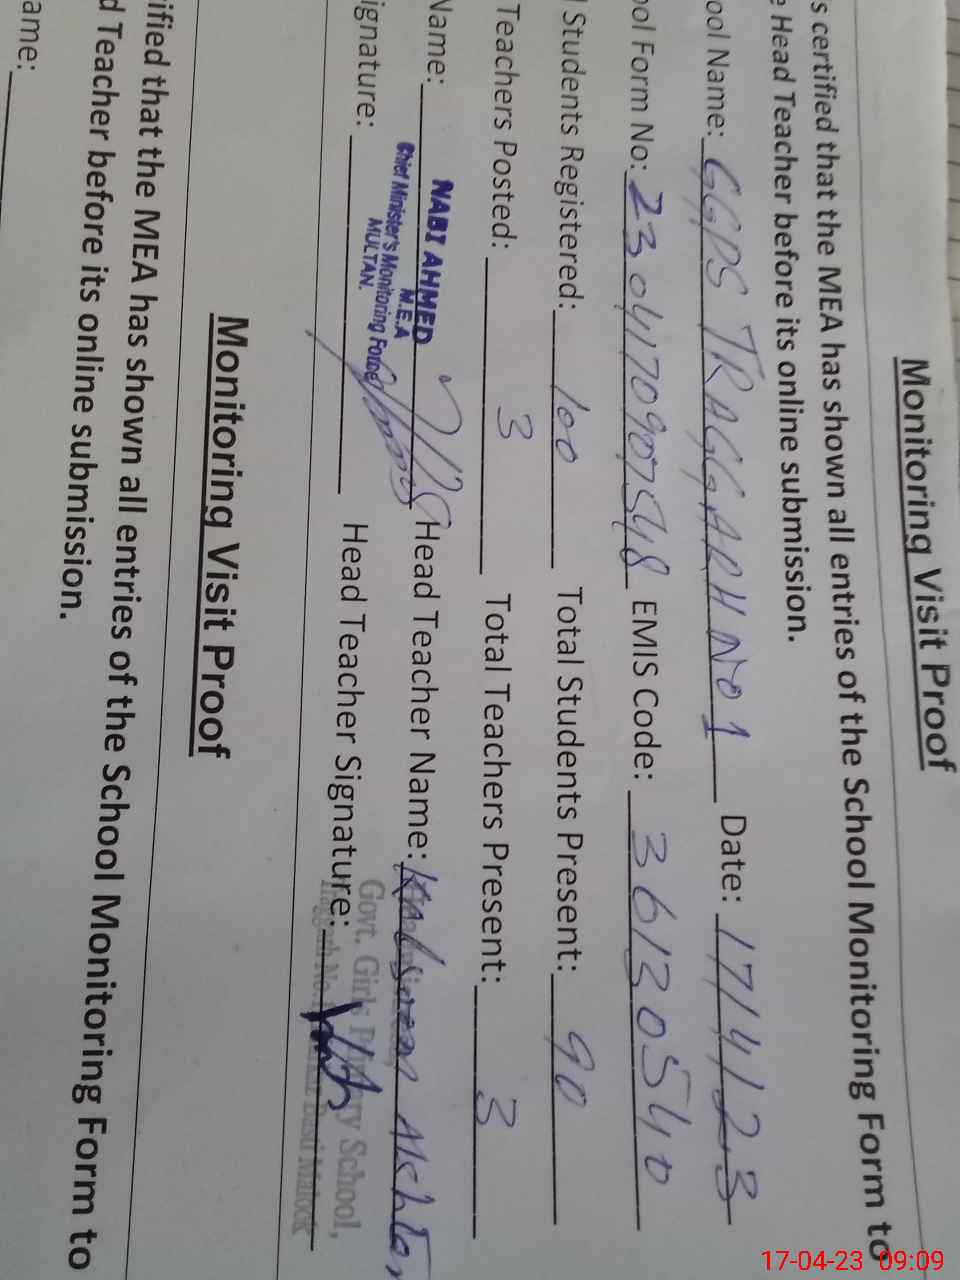 Monitoring Visit Proof
s certified that the MEA has shown all entries of the School Monitoring Form to
e Head Teacher before its online submission.
ool Name: GGPS TRAGGARH NO 1 Date: 17/4/23
ool Form No: 2304170907548 EMIS Code: 36130540
l Students Registered: 100 Total Students Present: 90
Teachers Posted: 3 Total Teachers Present: 3
Name: NABI AHMED Head Teacher Name: Akhtar
M.E.A
Chief Minister's Monitoring Force
MULTAN.
ignature: Head Teacher Signature:
Govt. Girls Primary School,
Monitoring Visit Proof
ified that the MEA has shown all entries of the School Monitoring Form to
d Teacher before its online submission.
ame:
17-04-23 09:09